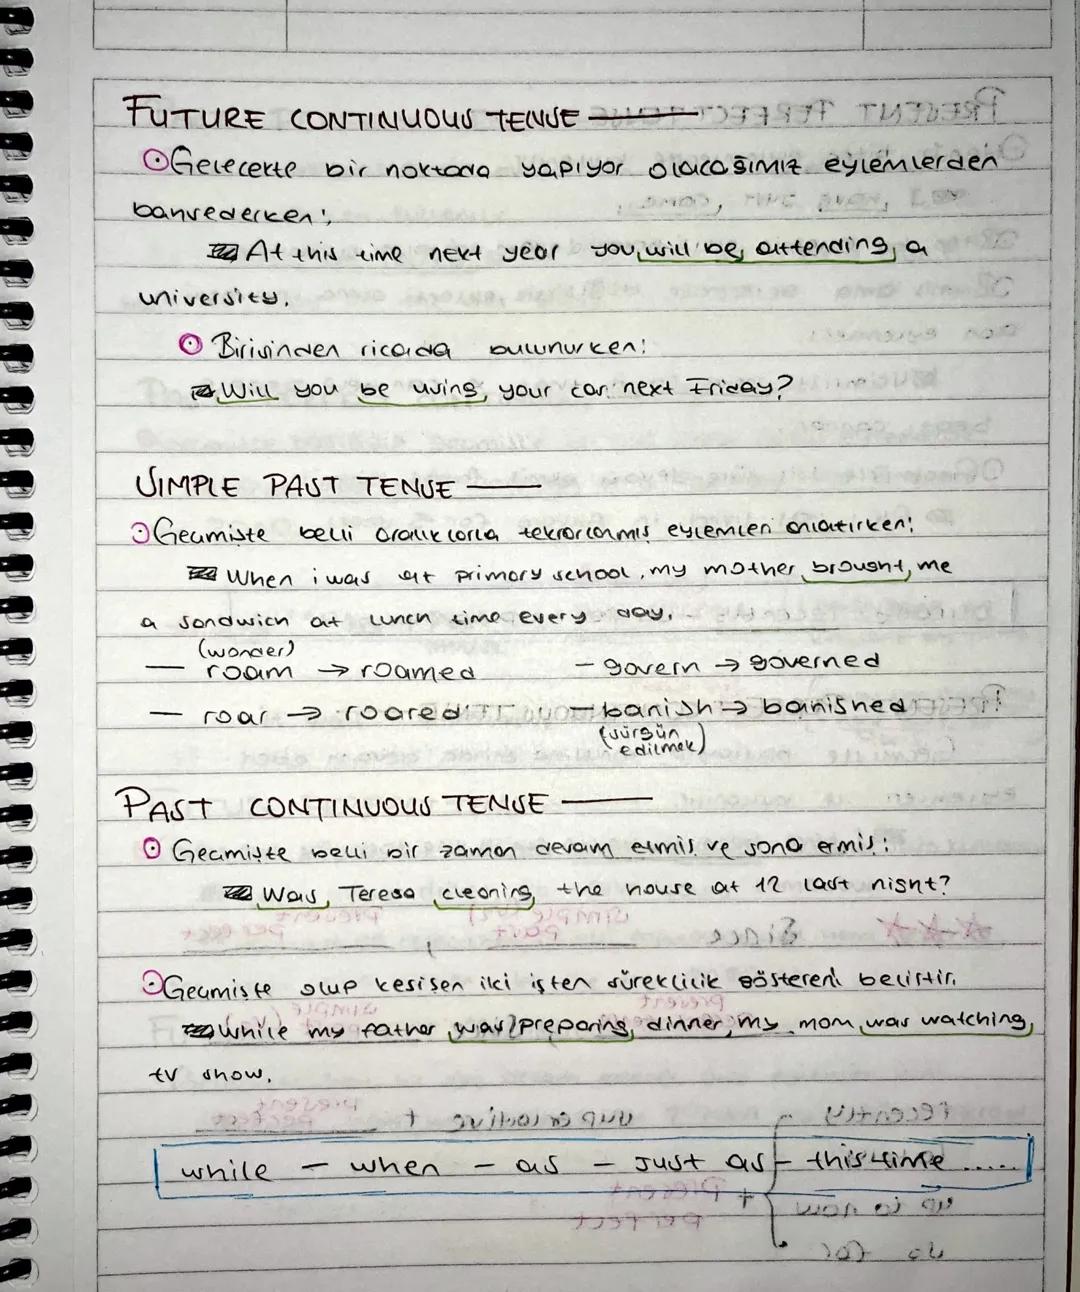 FUTURE CONTINUOUS TENSE
Gelecekte bir noktada yapıyor olacağımız eylemlerden
bahsederken;
At this time next year you will be attending a
university.
Birisinden ricada bulunurken:
Will you be using your car next Friday?
SIMPLE PAST TENSE
Geçmişte belli aralıklarla tekrarlanmış eylemleri anlatırken;
When i was at primary school, my mother brought me
a sandwich at lunch time every day.
(wander)
— roam → roamed
— govern → governed
— roar → roared
— banish → banished
(sürgün
edilmek)
PAST CONTINUOUS TENSE
Geçmişte belli bir zaman devam etmiş ve sona ermiş;
Was Teresa cleaning the house at 12 last night?
Geçmişte olup kesişen iki işten süreklilik göstereni belirtir.
While my father was preparing dinner, my mom was watching
tv show.
while – when – as – just as – this time .....